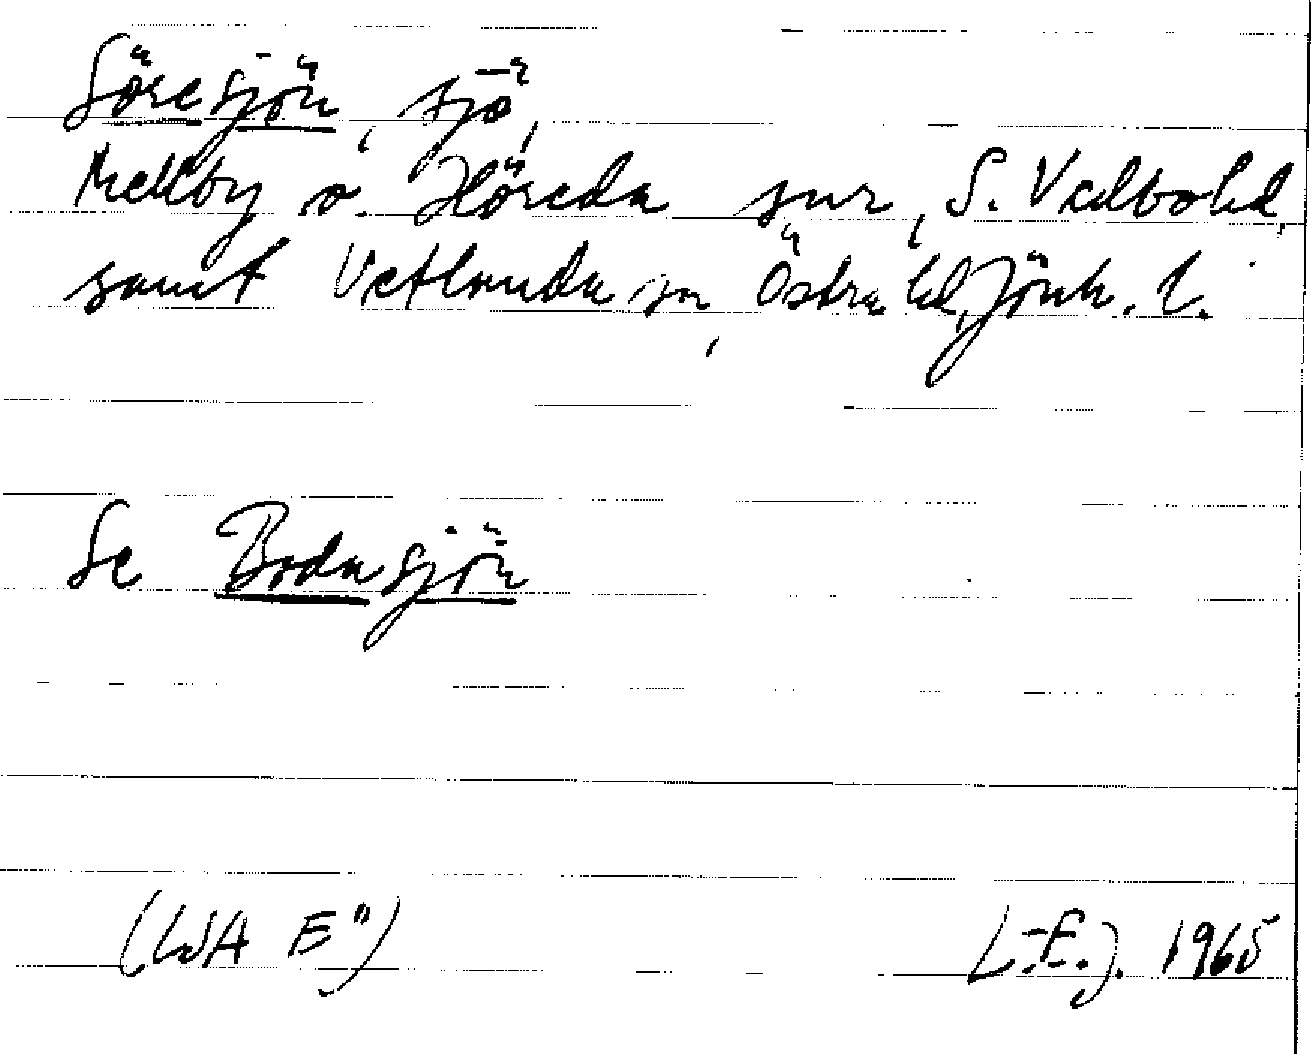 Söresjön, sjö,
Mellby o. Höreda snr, S. Vedbohd,
samt Vetlanda sn, Östra hd, Jönk. l.
Se Bodasjön
(LSA E")
L.E.J. 1965